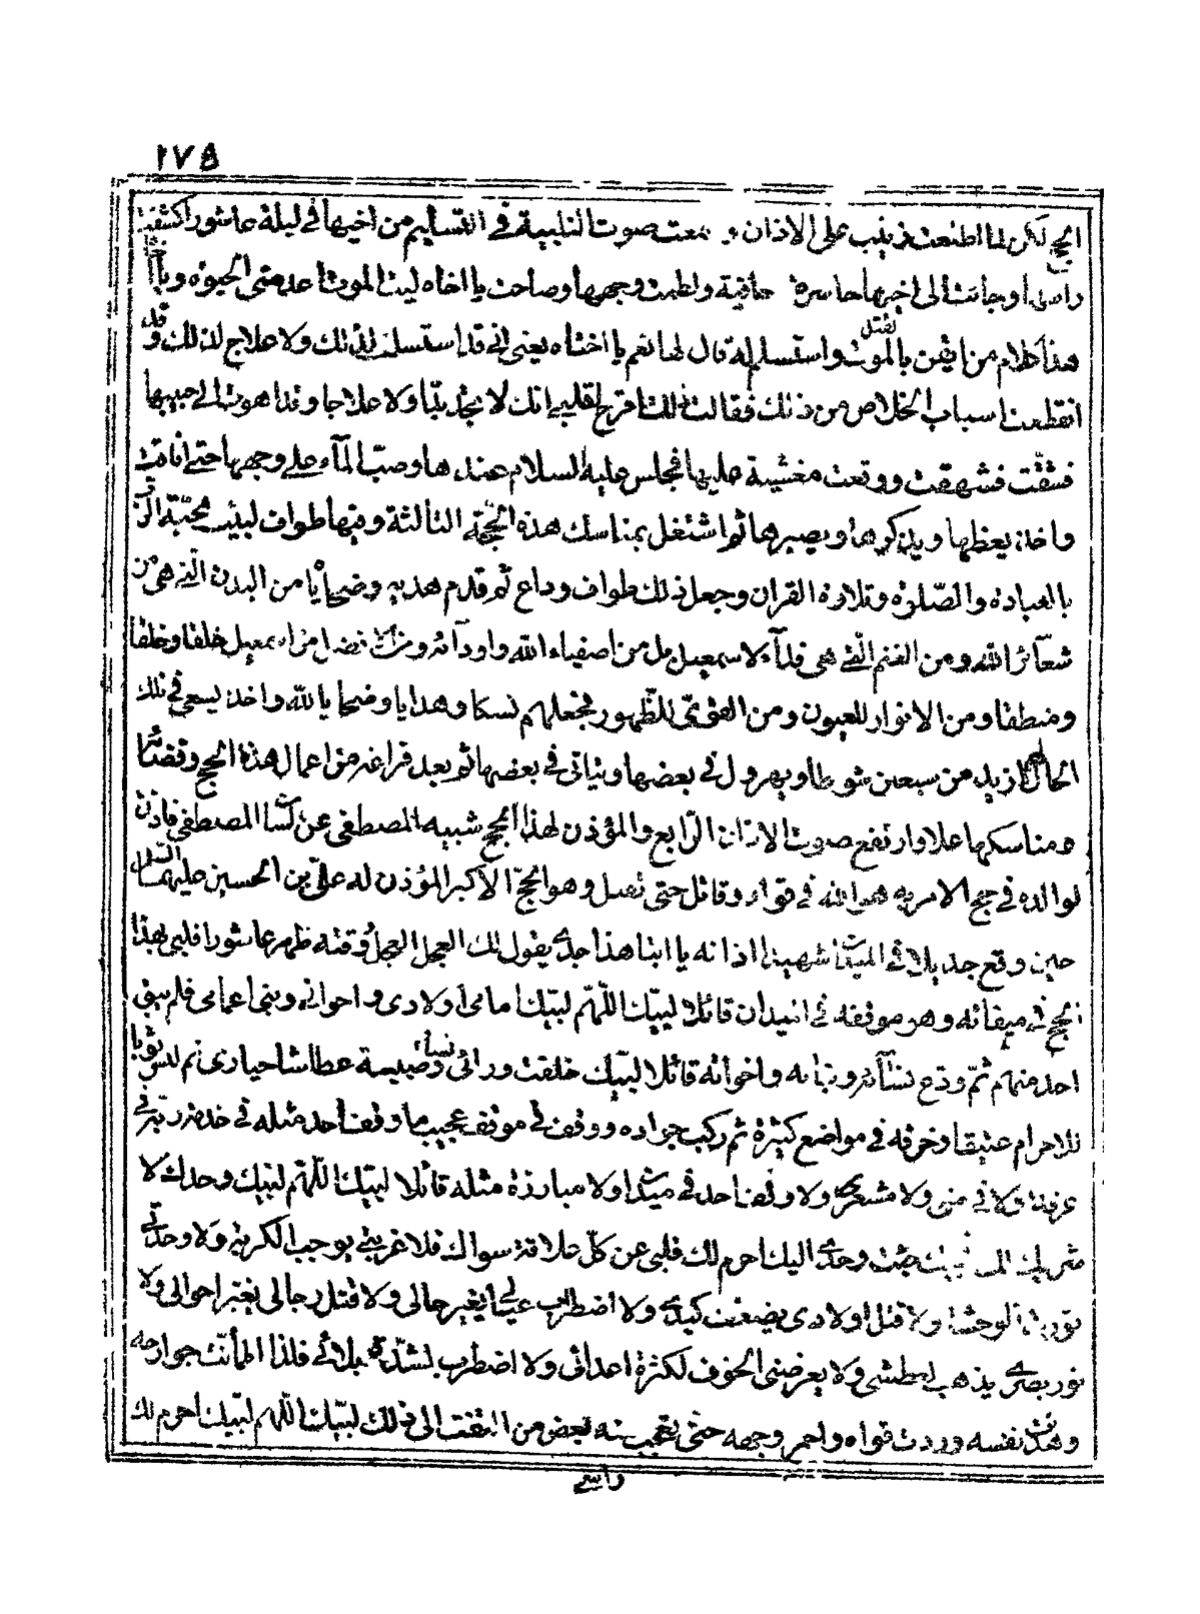 ١٧٥
الحج لكن لما اطلعت زينب على الاذان و سمعت صوت التلبية في التسليم من اخيها في ليلة عاشورا كشفت
راسها وجائت الى اخيها حاسرة حافية ولطمت وجهها وصاحت يا اخاه ليت الموت اعدمني الحيوة ويا اخا
هذا كلام من ايقن بالموت واستسلم له قال لها نعم يا اختاه يعني اني قد استسلمت لذلك ولا علاج لذلك وقد
انقطعت اسباب الخلاص من ذلك فقالت ذلك اقرح لقلبي انك لا تجد بدا ولا علاجا وقد اهوت الى جيبها
فشقت فشهقت ووقعت مغشية عليها فجلس عليه السلام عندها وصب الماء على وجهها حتى افاقت
واخذ يعظها ويذكرها ويصبرها ثم اشتغل بمناسك هذه الحجة الثالثة وفيها طواف لبيت محبة الرب
بالعبادة والصلوة وتلاوة القران وجعل ذلك طواف وداع ثم قدم هديه وضحايا من البدن التي هي من
شعائر الله ومن الغنم التي هي فداء لاسمعيل بل من اصفياء الله واودائه و من افضل من اسمعيل خلقا وخلقا
ومنطقا ومن الانوار للعيون ومن القوى للظهور فجعلهم نسكا وهدايا وضحايا لله واخذ يسعى في تلك
الحال ازيد من سبعين شوطا ويهرول في بعضها ويتانى في بعضها ثم بعد فراغه من اعمال هذا الحج وقضاء
مناسكها علا وارتفع صوت الاذان الرابع والمؤذن لهذا الحج شبيه المصطفى عن لسان المصطفى فاذن
لوالده في حج الامر به هو الله في قواه وقائل حتى تصل وهو الحج الاكبر المؤذن له علي بن الحسين عليهما السلام
حين وقع جديلا في الميدان شهيدا اذانه يا ابتا هذا جدي يقول لك العجل العجل وقته ظهر عاشورا فلبى بهذا
الحج في ميقاته وهو موقفه في الميدان قائلا لبيك اللهم لبيك امامي اولادي واخواني وبني اعمامي فلم يبق
احد منهم ثم ودع نسائه وبناته واخواته قائلا لبيك خلفت ورائي نساء وصبية عطاشا حيارى ثم لبس ثوبا
للاحرام عتيقا وخرقه في مواضع كثيرة ثم ركب جواده ووقف في موقف عجيب ما وقف احد مثله في
عرفات ولا في منى ولا مشعر ولا وقف احد في ميدان ولا مبارزة مثله قائلا لبيك اللهم لبيك وحدك لا
شريك لك لبيك جئت وحدي اليك احرم لك قلبي عن كل علاقة سواك فلا غربتي يوجب الكربة ولا وحدتي
تورث الوحشة ولا قتل اولادي يضعف كبدي ولا اضطراب عيالي يغير حالي ولا قتل رجالي يغير احوالي ولا
نور بصري يذهب لعطشي ولا يعرضني الخوف لكثرة اعدائي ولا اضطرب لشدة بلائي فلذا اطمأنت جوارحه
وهدئت نفسه ووردت قواه واحمر وجهه حتى تعجب منه بعض من التفت الى ذلك لبيك اللهم لبيك احرم لك
راسي